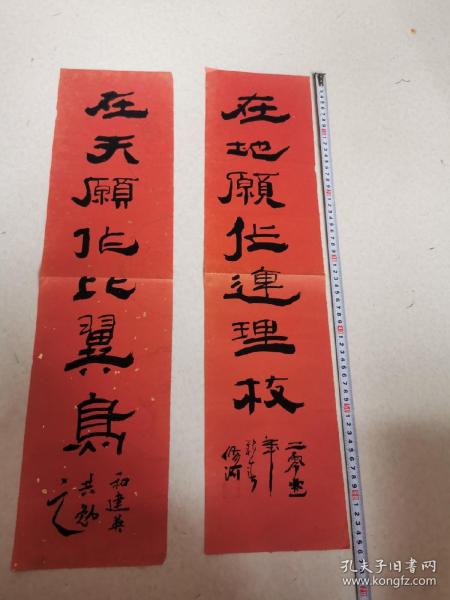 在天願作比翼鳥
和建英
共勉
之
在地願作連理枝
二零
年
孔夫子旧书网
www.kongfz.com